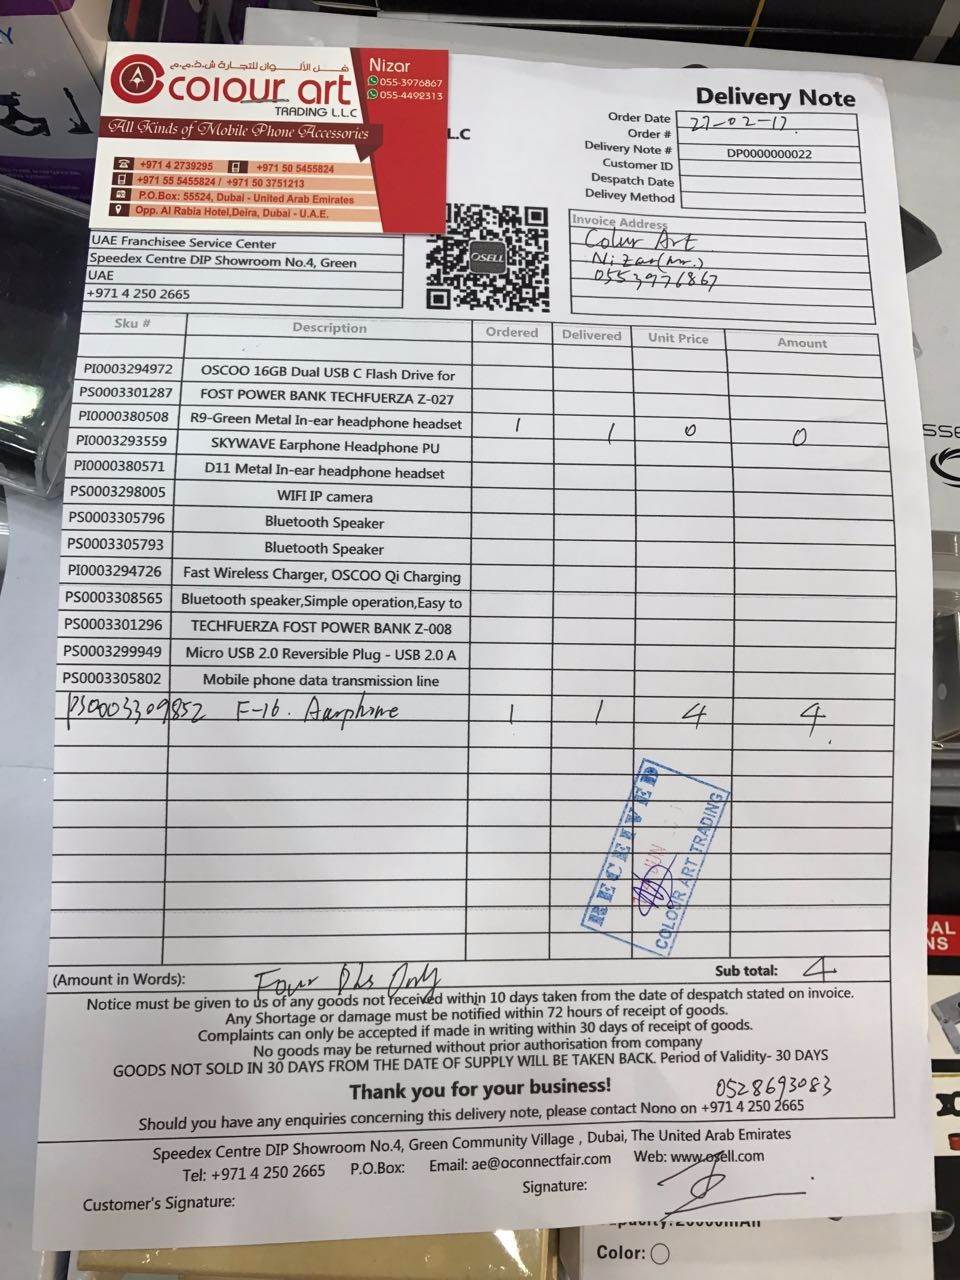 فـــن الألـــوان للتجارة ش.ذ.م.م
colour art
TRADING L.L.C
All Kinds of Mobile Phone Accessories
Nizar
055-3976867
055-4492313
+971 4 2739295 +971 50 5455824
+971 55 5455824 / +971 50 3751213
P.O.Box: 55524, Dubai - United Arab Emirates
Opp. Al Rabia Hotel,Deira, Dubai - U.A.E.
L.C
Delivery Note
Order Date 27-02-17
Order #
Delivery Note # DP0000000022
Customer ID
Despatch Date
Delivey Method
UAE Franchisee Service Center
Speedex Centre DIP Showroom No.4, Green
UAE
+971 4 250 2665
OSELL
Invoice Address
Colur Art
Nizar(Mr.)
0553976867
Sku # Description Ordered Delivered Unit Price Amount
PI0003294972 OSCOO 16GB Dual USB C Flash Drive for
PS0003301287 FOST POWER BANK TECHFUERZA Z-027
PI0000380508 R9-Green Metal In-ear headphone headset 1 1 0 0
PI0003293559 SKYWAVE Earphone Headphone PU
PI0000380571 D11 Metal In-ear headphone headset
PS0003298005 WIFI IP camera
PS0003305796 Bluetooth Speaker
PS0003305793 Bluetooth Speaker
PI0003294726 Fast Wireless Charger, OSCOO Qi Charging
PS0003308565 Bluetooth speaker,Simple operation,Easy to
PS0003301296 TECHFUERZA FOST POWER BANK Z-008
PS0003299949 Micro USB 2.0 Reversible Plug - USB 2.0 A
PS0003305802 Mobile phone data transmission line
PS0003309852 F-16. Aarphone 1 1 4 4
RECEIVED
COLOUR ART TRADING
(Amount in Words): Four Dhs Only Sub total: 4
Notice must be given to us of any goods not received within 10 days taken from the date of despatch stated on invoice.
Any Shortage or damage must be notified within 72 hours of receipt of goods.
Complaints can only be accepted if made in writing within 30 days of receipt of goods.
No goods may be returned without prior authorisation from company
GOODS NOT SOLD IN 30 DAYS FROM THE DATE OF SUPPLY WILL BE TAKEN BACK. Period of Validity- 30 DAYS
Thank you for your business! 0528693083
Should you have any enquiries concerning this delivery note, please contact Nono on +971 4 250 2665
Speedex Centre DIP Showroom No.4, Green Community Village , Dubai, The United Arab Emirates
Tel: +971 4 250 2665 P.O.Box: Email: ae@oconnectfair.com Web: www.osell.com
Customer's Signature: Signature:
Color: